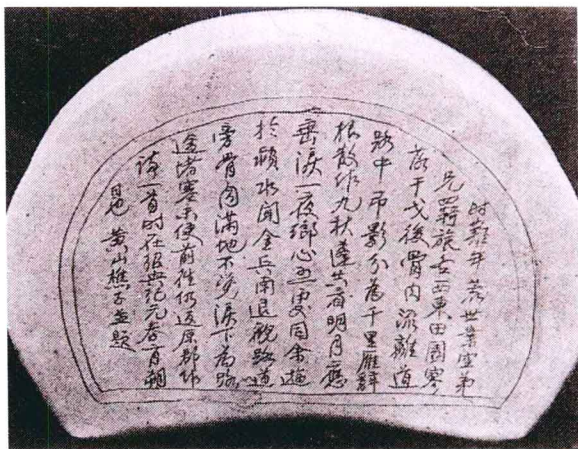 时難年荒世業空弟
兄羈旅各西東田園寥
落干戈後骨肉流離道
路中弔影分為千里雁辭
根散作九秋蓬共看明月應
垂淚一夜鄉心五處同余遊
於穎水聞金兵南退觀路邊
傍骨肉滿地不覺淚下為路
途堵塞未便前往仍返原郡作
詩一首时在紹興紀元春月朔
日也 黃山樵子並題